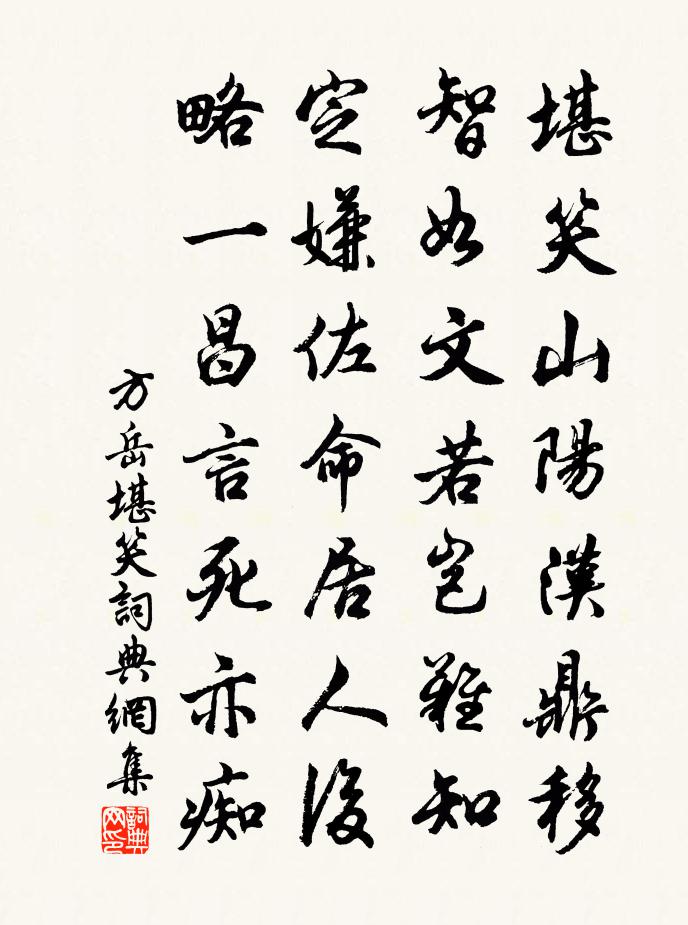 堪笑山陽漢鼎移
智如文若豈難知
定嫌佐命居人後
略一昌言死亦痴
方岳堪笑詞典網集
詞典網印